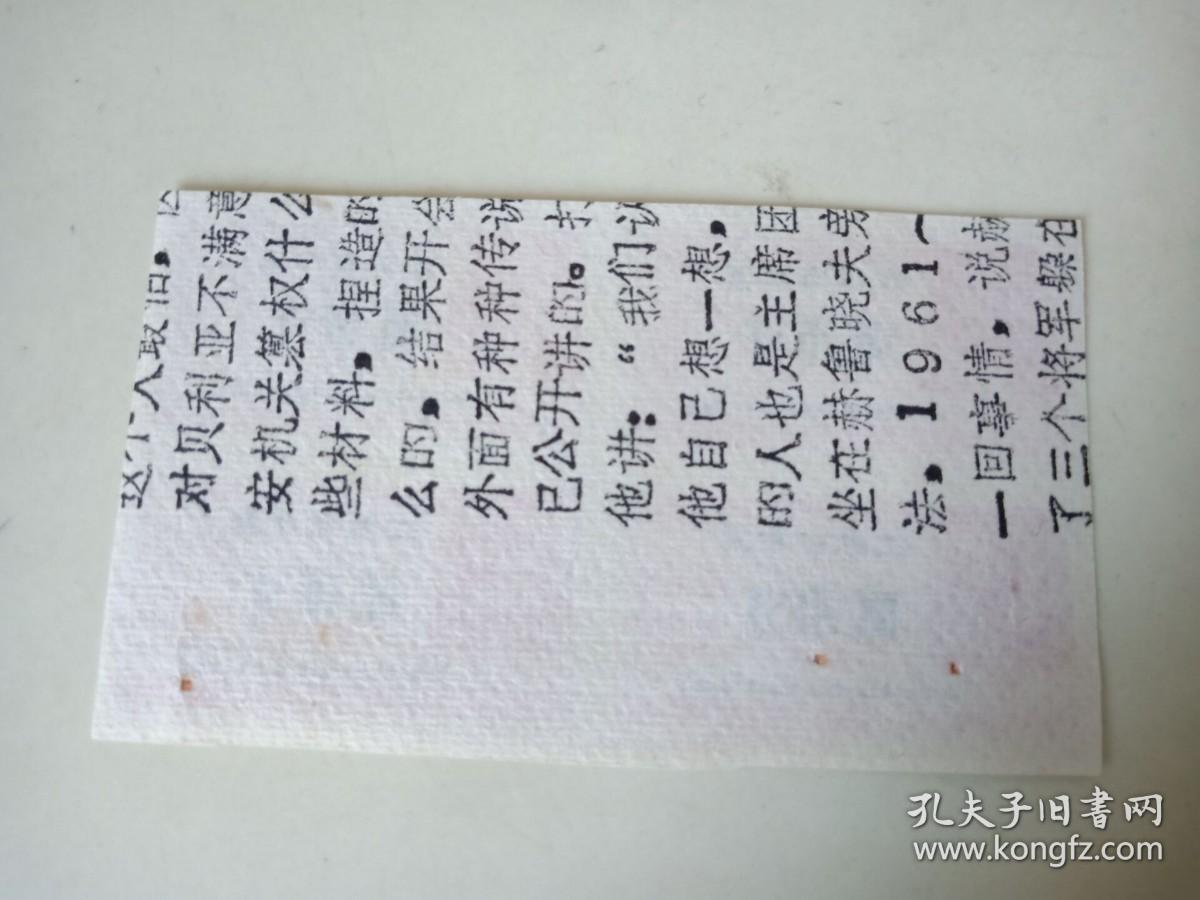 对贝利亚不满意
安机关篡权什么
些材料，捏造的
么的，结果开会
外面有种种传说
已公开讲的。
他讲：“我们认
他自己想一想，
的人也是主席团
坐在赫鲁晓夫旁
法，1961
一回事情，说赫
了三个将军躲在
孔夫子旧书网
www.kongfz.com